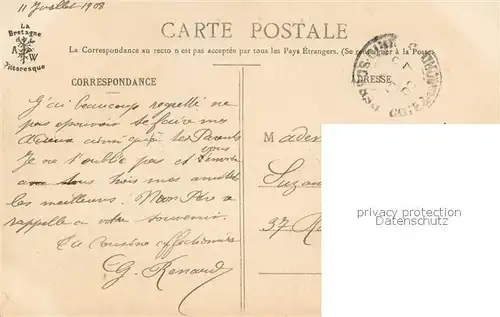 11 Juillet 1908
La
Bretagne
A W
Pittoresque
CARTE POSTALE
La Correspondance au recto n est pas acceptée par tous les Pays Étrangers. (Se renseigner à la Poste)
CORRESPONDANCE
ADRESSE
J'ai beaucoup regretté ne
pas pouvoir te faire mes
adieux ainsi qu'à tes Parents
Je ne t'oublie pas et vous envoie
tous trois mes amitiés
les meilleures. Mon Père se
rappelle à votre souvenir.
Ta cousine affectionnée
G. Renard
Madem
Suzan
37 R
physical watermark
protection personal data